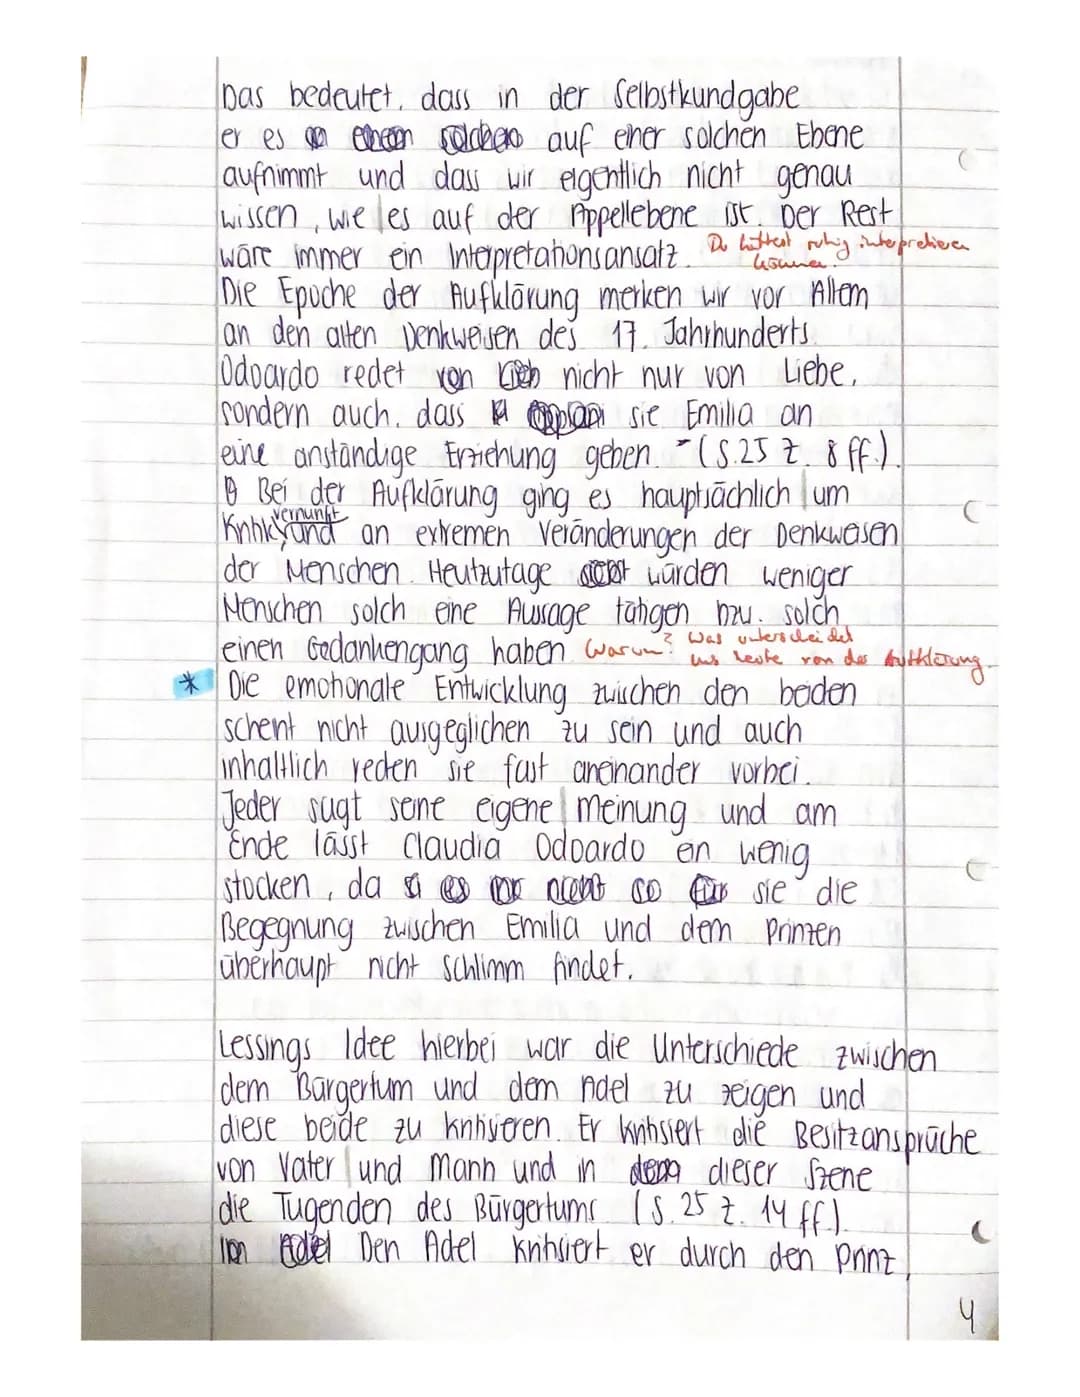 Das bedeutet, dass in der Selbstkundgabe
er es auf einer solchen Ebene
aufnimmt und dass wir eigentlich nicht genau
wissen, wie es auf der Appellebene ist. Der Rest
wäre immer ein Interpretationsansatz. Du hättest ruhig interpretieren
können.
Die Epoche der Aufklärung merken wir vor Allem
an den alten Denkweisen des 17. Jahrhunderts.
Odoardo redet von nicht nur von Liebe,
sondern auch, dass sie Emilia an
eine anständige Erziehung geben. - (S.25 Z. 8 ff.).
Bei der Aufklärung ging es hauptsächlich um
vernunft
Kritik und an extremen Veränderungen der Denkweisen
der Menschen. Heutzutage würden weniger
Menschen solch eine Aussage tätigen bzw. solch
einen Gedankengang haben. Warum? Was unterscheidet
uns heute von der Aufklärung.
* Die emotionale Entwicklung zwischen den beiden
scheint nicht ausgeglichen zu sein und auch
inhaltlich reden sie fast aneinander vorbei.
Jeder sagt seine eigene Meinung und am
Ende lässt Claudia Odoardo ein wenig
stocken, da sie die
Begegnung zwischen Emilia und dem Prinzen
überhaupt nicht schlimm findet.
Lessings Idee hierbei war die Unterschiede zwischen
dem Bürgertum und dem Adel zu zeigen und
diese beide zu kritisieren. Er kritisiert die Besitzansprüche
von Vater und Mann und in dieser Szene
die Tugenden des Bürgertums (S. 25 Z. 14 ff.).
Den Adel kritisiert er durch den Prinz,
4